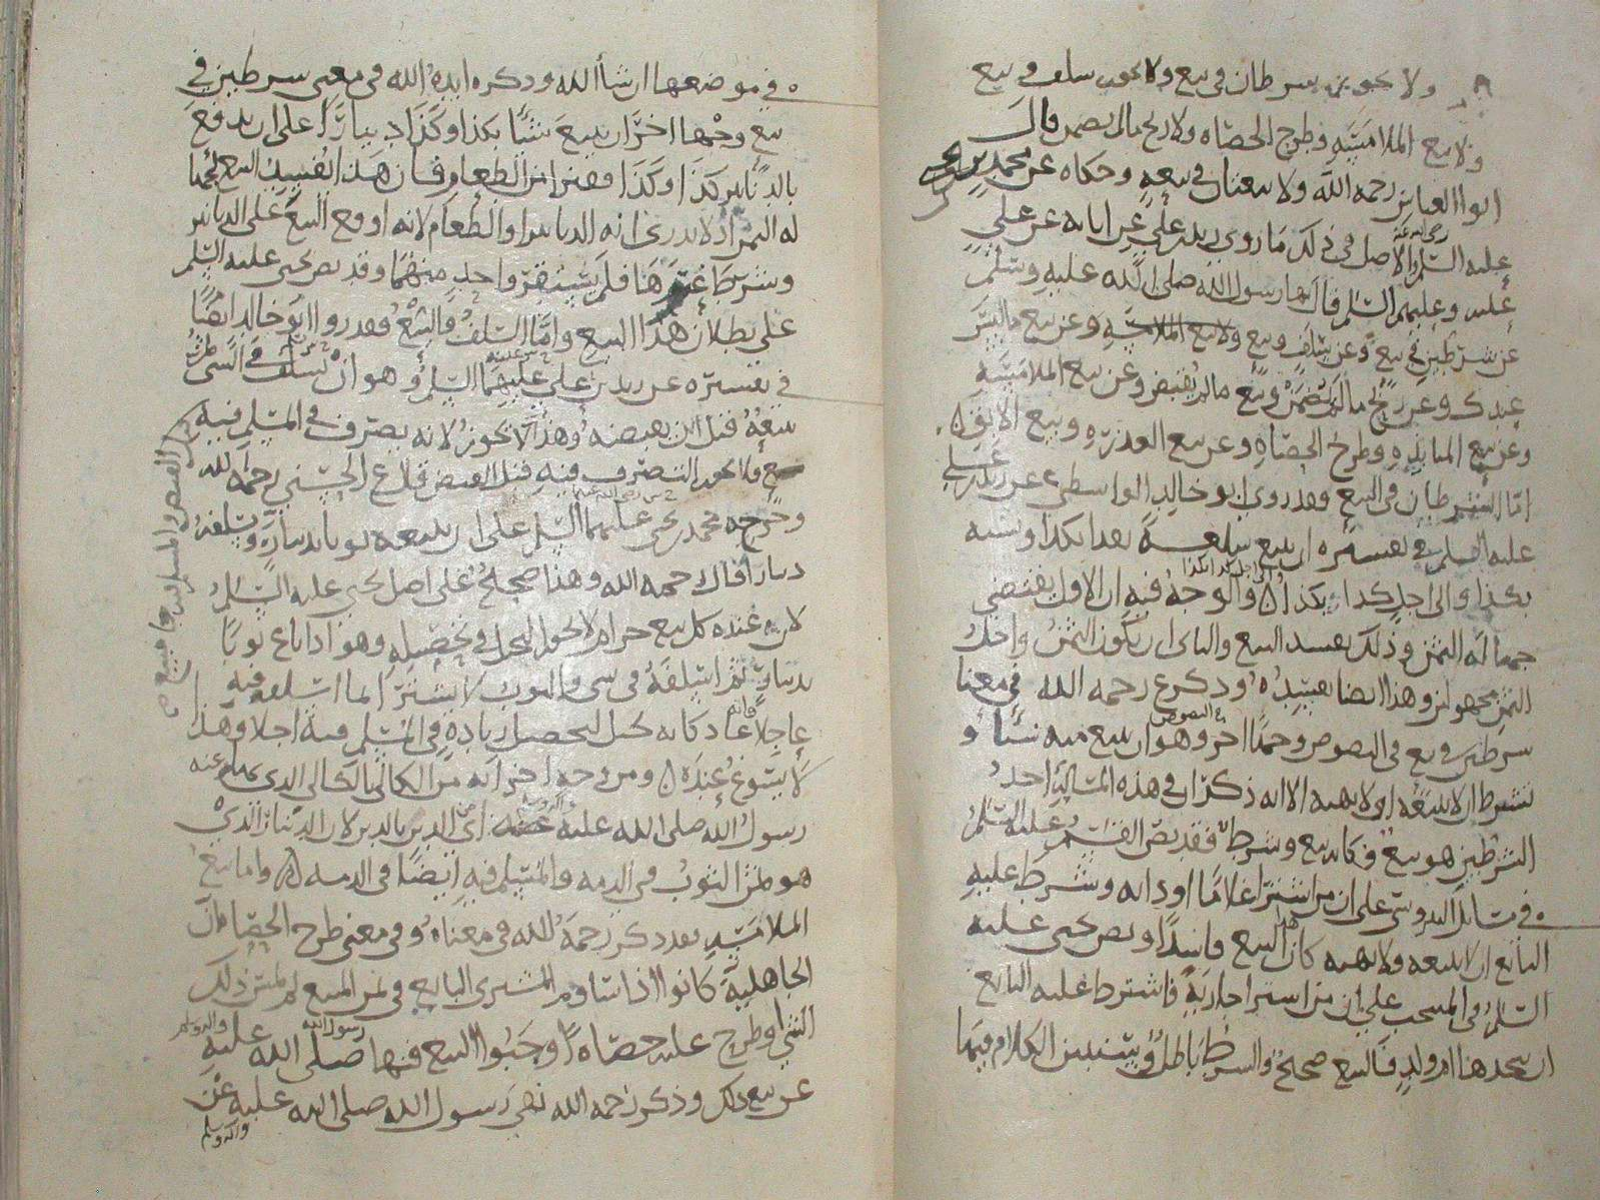 ولا يجوز شرطان في بيع ولا يجوز سلف في بيع
ولا بيع الملامسة وطرح الحصاة ولا ربح ما لم يضمن قال
ابو العباس رحمه الله ولا بيعتان في بيعه وحكاه عن محمد بن يحيى
عليه السلم والاصل في ذلك ما روي زيد بن علي عن ابايه عن علي
عليه وعليهم السلم قال نهانا رسول الله صلى الله عليه وسلم
عن شرطين في بيع وعن سلف وبيع وعن بيع ما ليس
عندك وعن ربح ما لم يضمن وبيع ما لم يقبض وعن بيع الملامسة
وعن بيع المنابذه وطرح الحصاه وعن بيع العذره وبيع الابق
اما الشرطان في البيع فقد روى ابو خالد الواسطي عن زيد بن علي
عليه السلم في تفسيره ان يبيع سلعة نقدا بكذا ونسيه
بكذا والى اجل كذا بكذا والوجه فيه ان الاول يقتضي
جهالة الثمن وذلك يفسد البيع والثاني ان يكون الثمن واحد
الثمن مجهولين وهذا ايضا يفسده وذكر ع رحمه الله في معنا
شرطين في بيع في النصوص وجها اخر وهو ان يبيع منه شيئا و
نشرط ان لا يبيعه او لا يهبه الا انه ذكر ان في هذه المسالة احد
الشرطين هو بيع فكانه بيع وشرط فقد نص القسم عليه السلم
في مسائل النيروسي على ان من اشترا غلاما او دابه وشرط عليه
البائع ان لا يبيعه ولا يهبه كان البيع فاسدا ونص يحيى عليه
السلم في المنتخب على ان من اشترا جارية فاشترط عليه البائع
ان يتخذها ام ولد فالبيع صحيح والشرط باطل وسنبين الكلام فيها
في موضعها ان شا الله وذكر ايده الله في معنى شرطين في
بيع وجها اخر ان يبيع شيئا بكذا وكذا دينارا على ان يدفع
بالدنانير كذا وكذا قفيزا من الطعام وقال هذا يفسد البيع لجهالة
له الثمن اذ لا يدري انه الدنانير او الطعام لانه اوقع البيع على الدنانير
وشرط غيرها فلم يستقر واحد منهما وقد نص يحيى عليه السلم
على بطلان هذا البيع واما السلف والبيع فقد روا ابو خالد ايضا
في تفسيره عن زيد بن علي عليهما السلم وهو ان تسلف في الشي
تبيعه قبل ان يقبضه وهذا لا يجوز لانه يصرف في المسلم فيه
ولا يجوز التصرف فيه قبل القبض قال ع الحسني رحمه الله
وخرجه محمد بن يحيى عليهما السلم على ان يبيعه ثوبا بدينار ويسلفه
دينارا قال رحمه الله وهذا صحيح على اصل يحيى عليه السلم
لان عنده كل بيع حرام لا يجوز التحرا في تحصيله وهو اذا باع ثوبا
بدينار ثم اسلفه في شي والثوب لا يشترا لما اسلفه فيه
عاجلا فانه عاد كانه حيل لتحصيل زيادة في المسلم فيه اجلا وهذا
لا يسوغ عنده ومن وجه اخر انه من الكالي بالكالي الذي نهى عنه
رسول الله صلى الله عليه اي الدين بالدين لان الدينار الذي
هو ثمن الثوب في الذمه والمسلم فيه ايضا في الذمه واما بيع
الملامسة فقد ذكر رحمه الله في معناه وفي معنى طرح الحصا ان
الجاهلية كانوا اذا تساوم المشتري البايع في ثمن المبيع ثم لمس ذلك
الشي او طرح عليه حصاة اوجبوا البيع فنها رسول الله صلى الله عليه واله وسلم
عن بيع ذلك وذكر رحمه الله نهى رسول الله صلى الله عليه واله وسلم عن